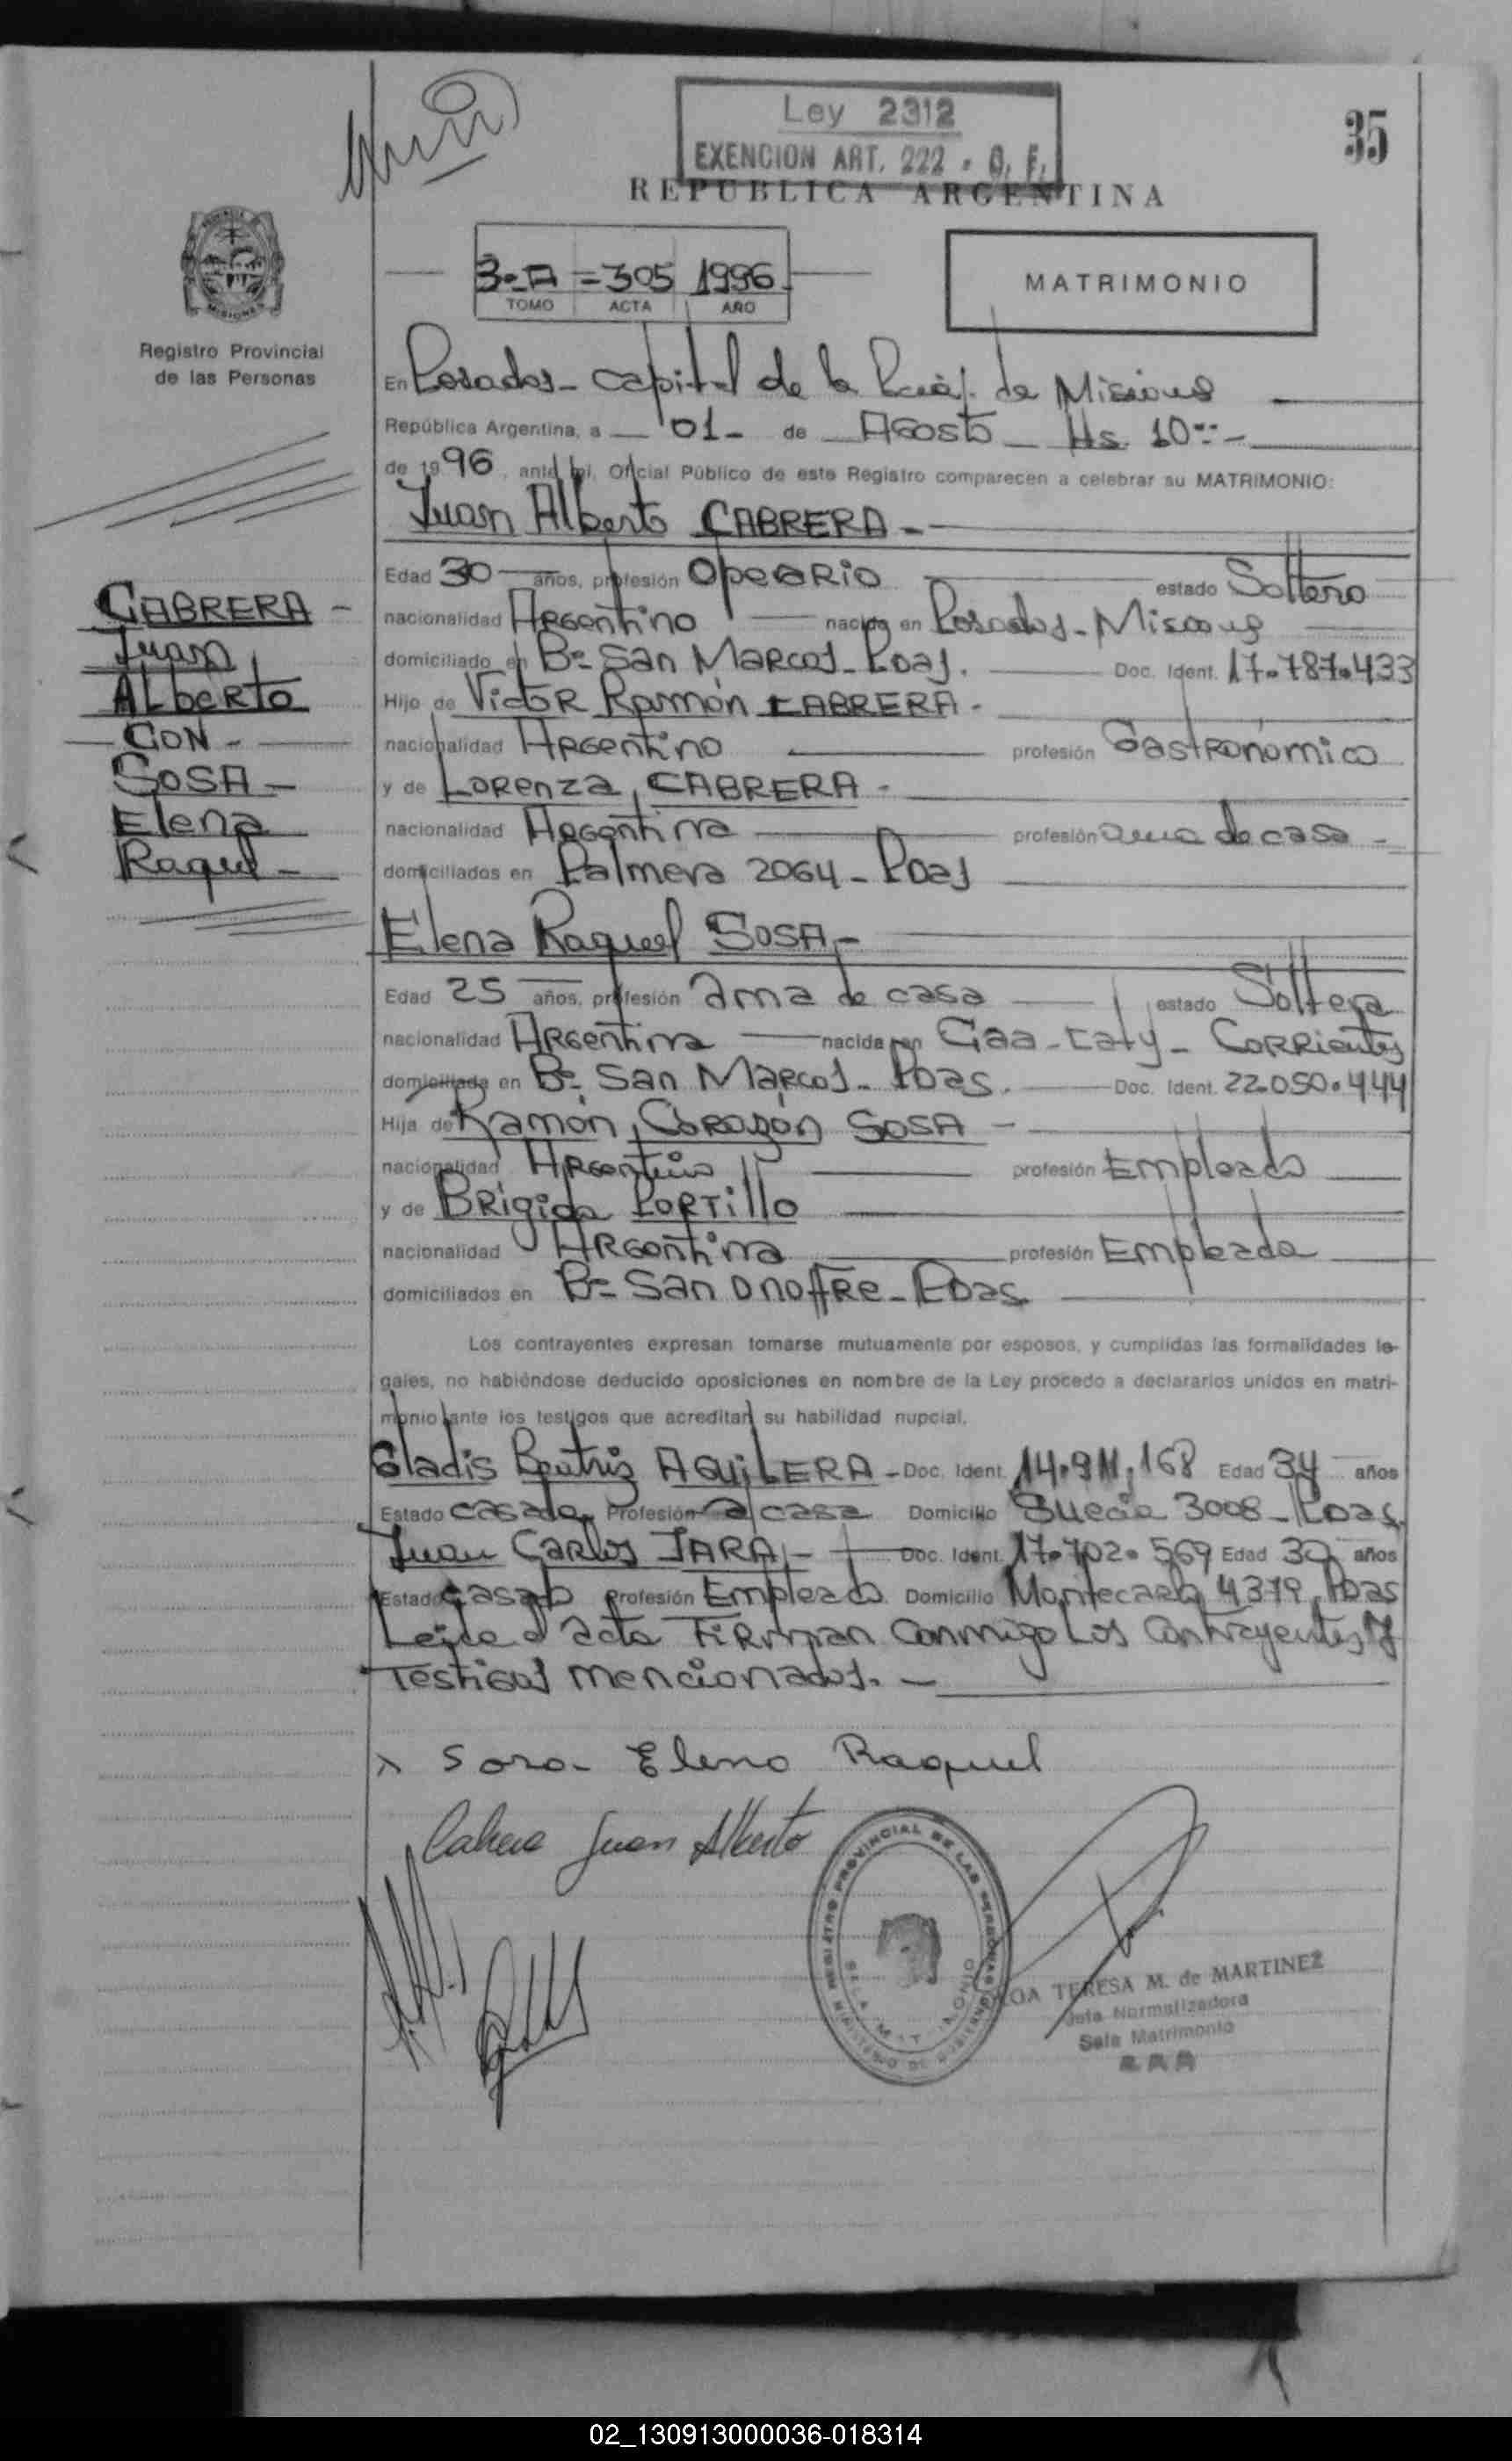 Ley 2312
EXENCION ART. 222 - O. F.
35
REPUBLICA ARGENTINA
3º-A = 305 1996
TOMO ACTA AÑO
MATRIMONIO
Registro Provincial
de las Personas
En Posadas - Capital de la de Misiones
República Argentina, a 01 - de Agosto Hs. 10
de 1996, ante mi, Oficial Público de este Registro comparecen a celebrar su MATRIMONIO:
Juan Alberto CABRERA -
Edad 30 años, profesión Operario estado Soltero
nacionalidad Argentino nacido en Posadas - Misiones
domiciliado en Bº San Marcos - Pdas. Doc. Ident. 17.787.433
Hijo de Victor Ramón CABRERA -
nacionalidad Argentino profesión Gastronómico
y de Lorenza, CABRERA -
nacionalidad Argentina profesión ama de casa -
domiciliados en Palmera 2064 - Pdas
CABRERA -
Juan
Alberto
- CON -
SOSA -
Elena
Raquel -
Elena Raquel SOSA -
Edad 25 años, profesión ama de casa estado Soltera
nacionalidad Argentina nacida en Caa - Caty - Corrientes
domiciliada en Bº San Marcos - Pdas. Doc. Ident. 22.050.444
Hija de Ramón, Corazón SOSA -
nacionalidad Argentino profesión Empleado
y de Brigida Portillo
nacionalidad Argentina profesión Empleada
domiciliados en Bº San Onofre - Pdas
Los contrayentes expresan tomarse mutuamente por esposos, y cumplidas las formalidades le-
gales, no habiéndose deducido oposiciones en nombre de la Ley procedo a declararlos unidos en matri-
monio ante los testigos que acreditan su habilidad nupcial.
Gladis Beatriz AGUILERA - Doc. Ident. 14.911.168 Edad 34 años
Estado casada Profesión a/casa Domicilio Suecia 3008 - Pdas.
Juan Carlos JARA, - Doc. Ident. 17.702.569 Edad 30 años
Estado casado profesión Empleado Domicilio Montecarlo 4379, Pdas
Leida el acta Firman conmigo Los Contrayentes y
Testigos mencionados. -
x Sosa - Elena Raquel
Cabrera Juan Alberto
REGISTRO PROVINCIAL DE LAS PERSONAS
MINISTERIO DE GOBIERNO
TERESA M. de MARTINEZ
Jefa Normalizadora
Sala Matrimonio
02_130913000036-018314